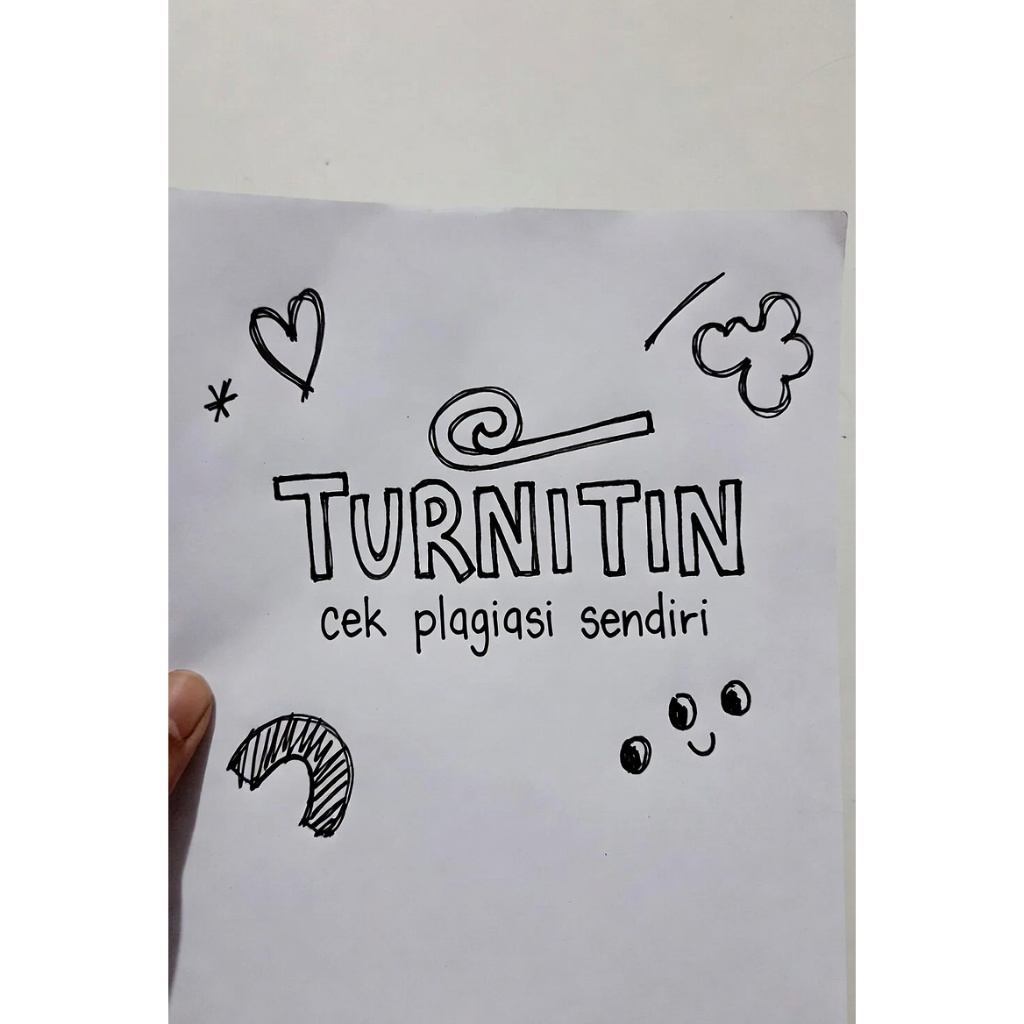 TURNITIN
cek plagiasi sendiri